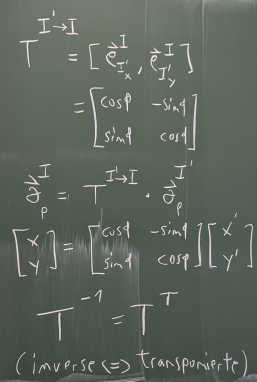 T^{I'→I} = [ \vec{e}^{I}_{I'_x}, \vec{e}^{I}_{I'_y} ]
= [ cosφ -sinφ
sinφ cosφ ]
\vec{r}^{I}_{p} = T^{I'→I} · \vec{r}^{I'}_{p}
[ x = [ cosφ -sinφ [ x'
y ] sinφ cosφ ] y' ]
T^{-1} = T^{T}
(inverse <=> transponierte)